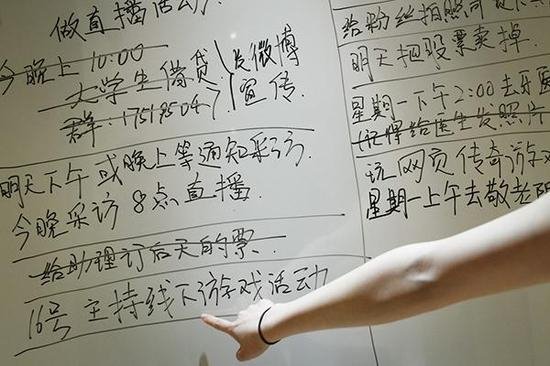 做直播活动
今晚上10:00
大学生借贷
群:17519504
发微博
宣传.
明天下午或晚上等通知采访.
今晚采访8点直播.
给助理订后天的票.
16号主持线下游戏活动
给粉丝拍照
明天把股票卖掉.
星期一下午2:00去牙医
(记得给医生发照片
玩网页传奇游戏
星期一上午去敬老院